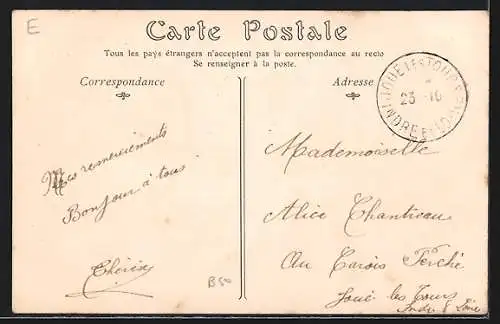 E
Carte Postale
Tous les pays étrangers n'acceptent pas la correspondance au recto
Se renseigner à la poste.
Correspondance
Adresse
JOUÉ LES TOURS
23 -10
INDRE-ET-LOIRE
Mes remerciements
Bonjour à tous
Thérèse
B50
Mademoiselle
Alice Chanticau
Au Carois Perché
Joué les Tours
Indre & Loire